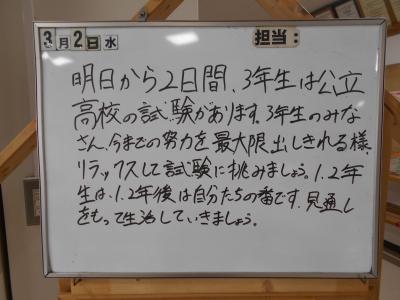 3月2日水 担当:
明日から2日間、3年生は公立
高校の試験があります。3年生のみな
さん、今までの努力を最大限出しきれる様、
リラックスして試験に挑みましょう。1.2年
生は、1.2年後は自分たちの番です。見通し
をもって生活していきましょう。